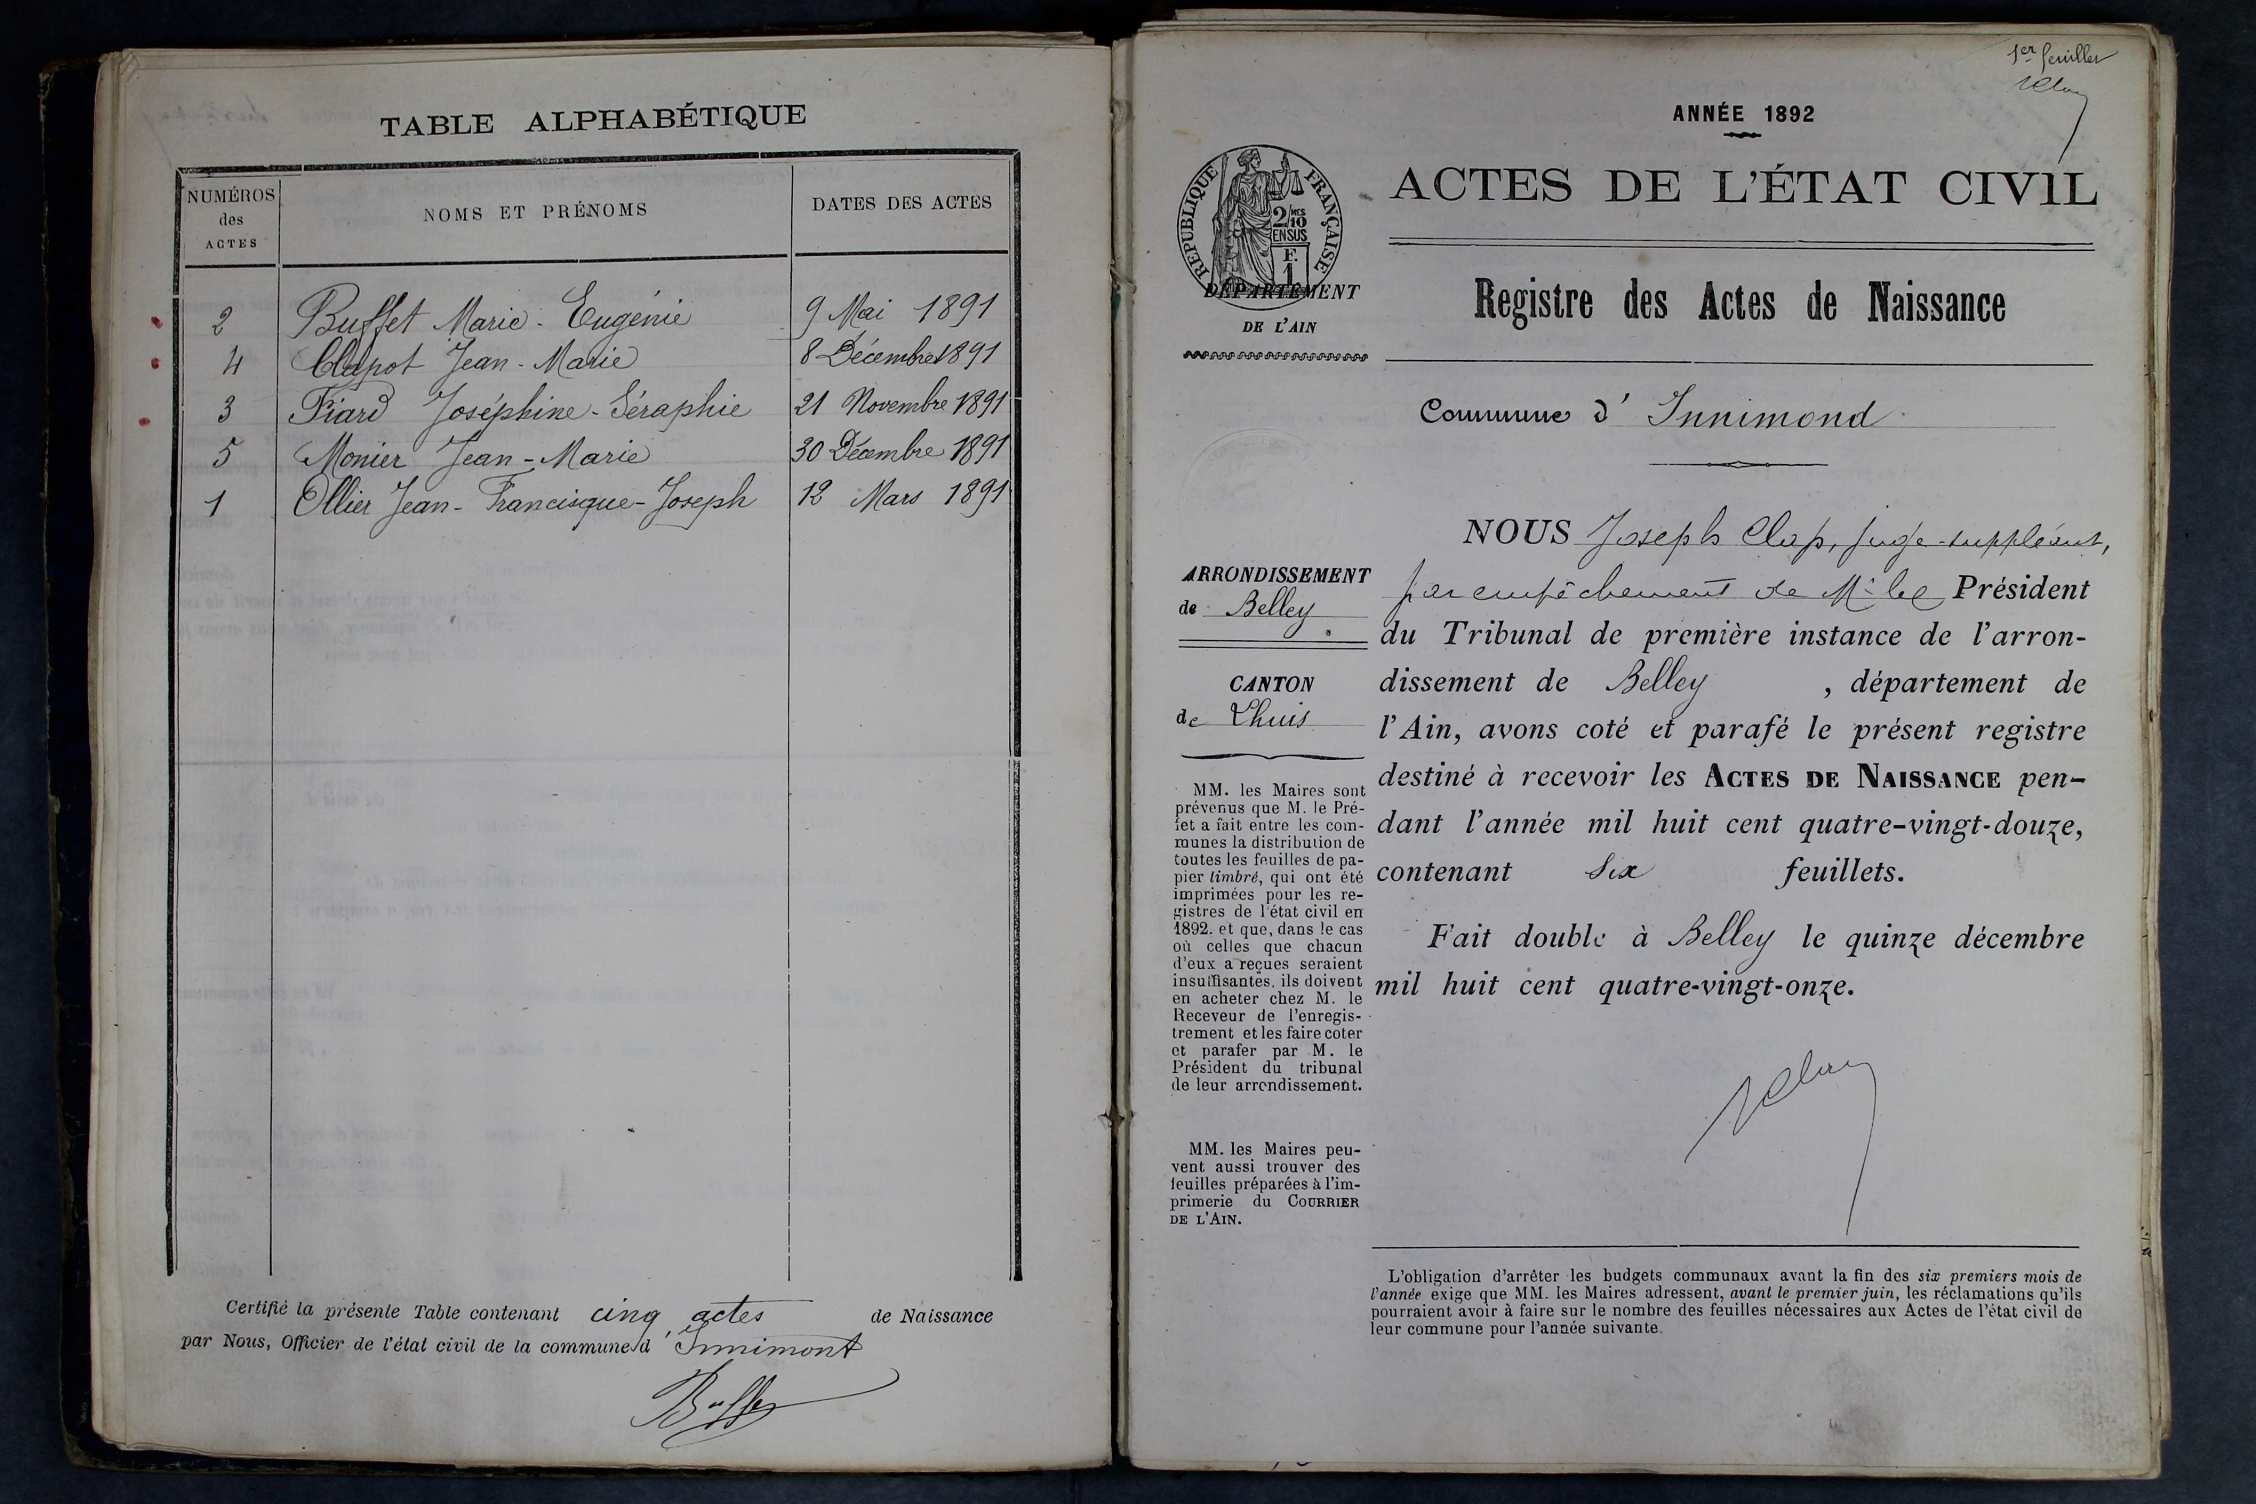 TABLE ALPHABÉTIQUE
NUMÉROS
des
ACTES
NOMS ET PRÉNOMS
DATES DES ACTES
2 Buffet Marie-Eugénie 9 Mai 1891
4 Clapot Jean-Marie 8 Décembre 1891
3 Fiard Joséphine-Séraphie 21 Novembre 1891
5 Monier Jean-Marie 30 Décembre 1891
1 Ollier Jean-Francisque-Joseph 12 Mars 1891
Certifié la présente Table contenant cinq actes de Naissance
par Nous, Officier de l'état civil de la commune d'Innimont
Buffet
1er feuillet
ANNÉE 1892
ACTES DE L'ÉTAT CIVIL
RÉPUBLIQUE FRANÇAISE
2/10
MES
EN SUS
F.
1
DÉPARTEMENT
DE L'AIN
Registre des Actes de Naissance
Commune d'Innimond
NOUS Joseph Clap, juge-suppléant,
par empêchement de Mr le Président
du Tribunal de première instance de l'arron-
dissement de Belley, département de
l'Ain, avons coté et parafé le présent registre
destiné à recevoir les ACTES DE NAISSANCE pen-
dant l'année mil huit cent quatre-vingt-douze,
contenant six feuillets.
Fait double à Belley le quinze décembre
mil huit cent quatre-vingt-onze.
ARRONDISSEMENT
de Belley
CANTON
de Lhuis
MM. les Maires sont
prévenus que M. le Pré-
fet a fait entre les com-
munes la distribution de
toutes les feuilles de pa-
pier timbré, qui ont été
imprimées pour les re-
gistres de l'état civil en
1892. et que, dans le cas
où celles que chacun
d'eux a reçues seraient
insuffisantes, ils doivent
en acheter chez M. le
Receveur de l'enregis-
trement et les faire coter
et parafer par M. le
Président du tribunal
de leur arrondissement.
MM. les Maires peu-
vent aussi trouver des
feuilles préparées à l'im-
primerie du COURRIER
DE L'AIN.
L'obligation d'arrêter les budgets communaux avant la fin des six premiers mois de
l'année exige que MM. les Maires adressent, avant le premier juin, les réclamations qu'ils
pourraient avoir à faire sur le nombre des feuilles nécessaires aux Actes de l'état civil de
leur commune pour l'année suivante.